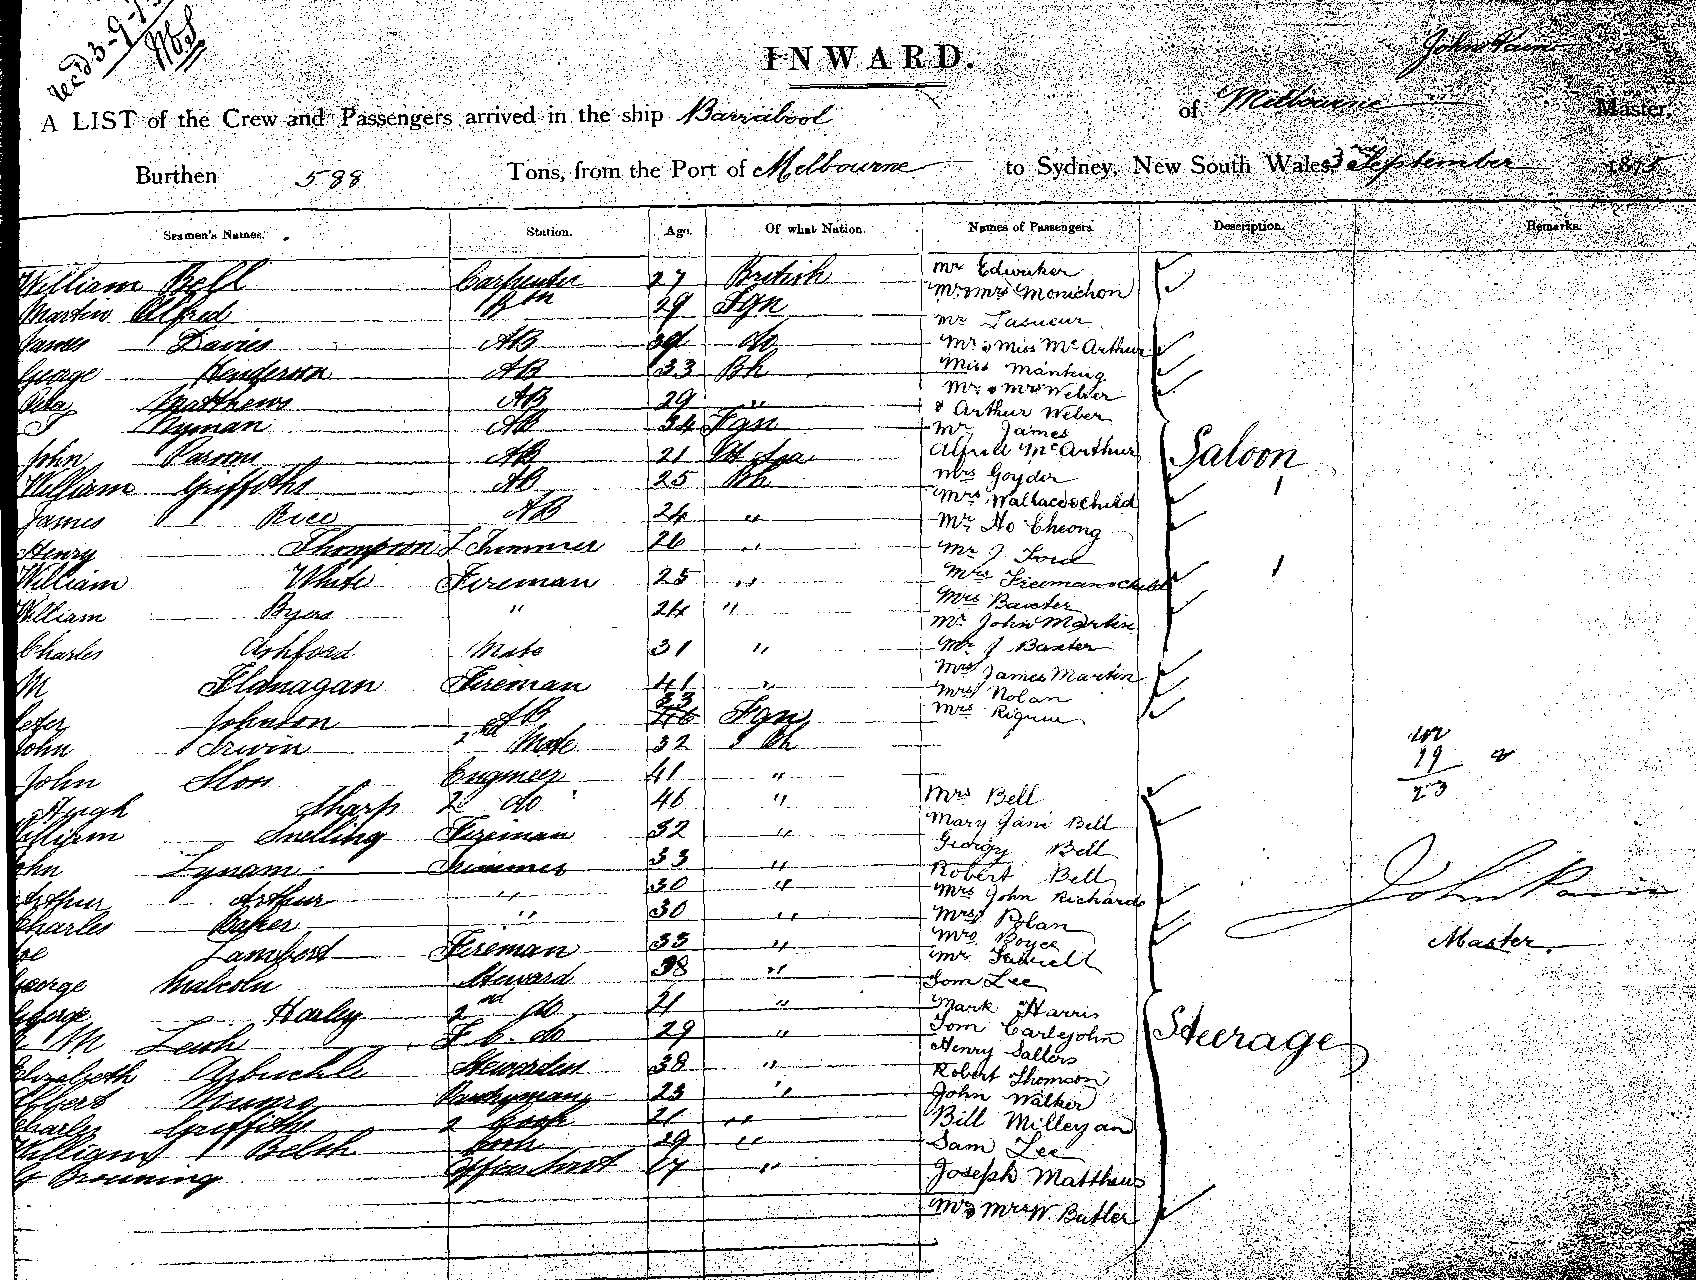 Recd 3-9-
INWARD.
John Pain
A LIST of the Crew and Passengers arrived in the ship Barrabool of Melbourne Master,
Burthen 588 Tons, from the Port of Melbourne to Sydney, New South Wales, 3rd September 1875
Seamen's Names. Station. Age. Of what Nation. Names of Passengers. Description. Remarks.
William Bell Carpenter 27 British Mr Edwaker
Mr & Mrs Monichon
Martin Alfred 29 Fgn
Mr Lasueur
James Davies AB do
Mr & Miss McArthur
George Henderson AB 33 Bh Miss Manting
Matthews AB 29 " Mr & Mrs Weber
& Arthur Weber
Nyman AB 34 Fgn Mr James
John Parsons AB 21 Alfred McArthur
Saloon
William Griffiths AB 25 Bh Mrs Goyder
Mrs Wallace & child
James Rice AB 24 " Mr Ho Cheong
Henry Thompson Trimmer 26 " Mr J. Ford
William White Fireman 25 " Mrs Freeman & child
William Byers " 24 " Mrs Baxter
Mr John Martin
Charles Ashford Mate 31 " Mr J Baxter
M Flanagan Fireman 41 " Mrs James Martin
Mrs Nolan
Peter Johnson AB 33 Fgn Mrs
John Irwin 2nd Mate 32 Bh
John Sloss Engineer 41 "
19
23
Hugh Sharp 2 do 46 " Mrs Bell
William Snelling Fireman 32 " Mary Jane Bell
George Bell
John Lynam Trimmer 33 " Robert Bell
Arthur Arthur " 30 " Mrs John Richards
John Pain
Charles Baker " 30 " Mrs Nolan
Mrs Boyce
Joe Lambert Fireman 33 " Mr
Master.
George Malcolm Steward 38 " Tom Lee
George Harley 2nd do 21 " Mark Harris
M Leish F. C. do 29 " Tom Carlejohn
Steerage
Henry Salters
Elizabeth Arbuckle Stewardess 38 " Robert Thomson
Munro Pantryman 23 " John Walker
Charles Griffiths 2 Cook 21 " Bill Milleyan
William Belch Cook 29 " Sam Lee
G Browning 17 " Joseph Matthews
Mr & Mrs W. Butler